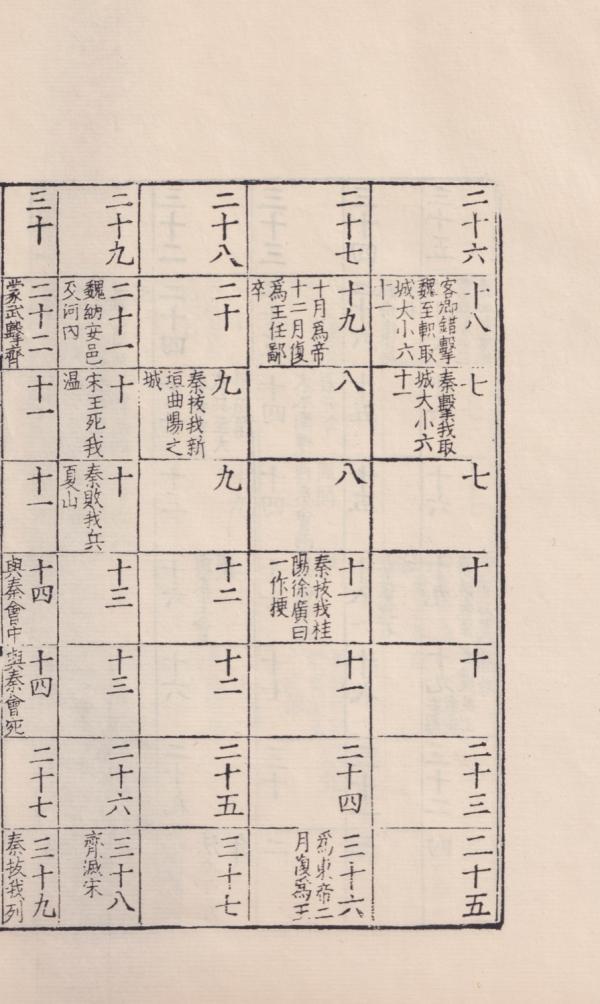 二十六
十八
客卿錯擊
魏至軹取
城大小六
十一
七
秦擊我取
城大小六
十一
七
十
十
二十三
二十五
二十七
十九
十月爲帝
十二月復
爲王任鄙
卒
八
八
十一
秦拔我桂
陽徐廣曰
一作梗
十一
二十四
三十六
爲東帝二
月復爲王
二十八
二十
九
秦拔我新
垣曲陽之
城
九
十二
十二
二十五
三十七
二十九
二十一
魏納安邑
及河內
十
宋王死我
温
十
秦敗我兵
夏山
十三
十三
二十六
三十八
齊滅宋
三十
二十二
蒙武擊齊
十一
十一
十四
與秦會中
十四
與秦會死
二十七
三十九
秦拔我列